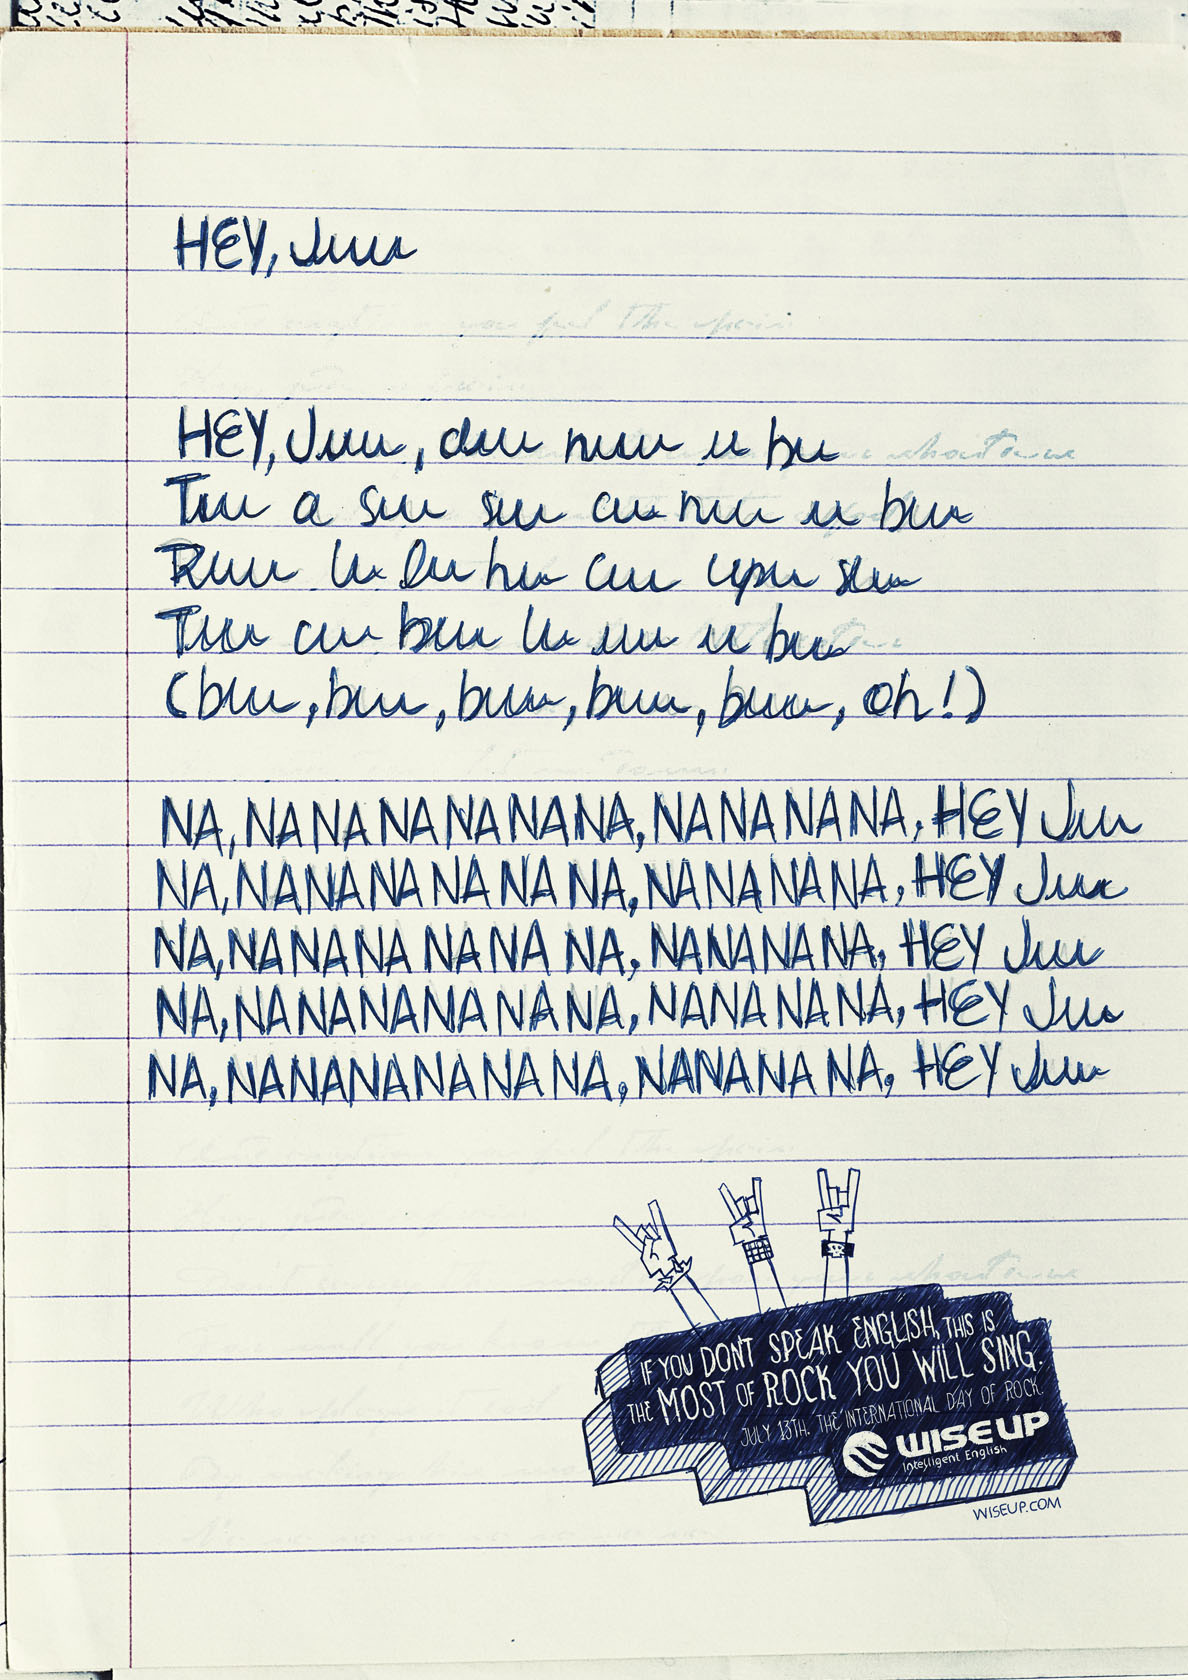 HEY, Juu
HEY, Juu, duu nuu u bu
Tuu a suu suu cu nuu u buu
Ruu lu lu hu cuu upu suu
Tuu cu buu lu uu u buu
(buu, buu, buu, buu, buu, oh!)
NA, NA NA NA NA NA NA, NA NA NA NA, HEY Juu
NA, NA NA NA NA NA NA, NA NA NA NA, HEY Juu
NA, NA NA NA NA NA NA, NA NA NA NA, HEY Juu
NA, NA NA NA NA NA NA, NA NA NA NA, HEY Juu
NA, NA NA NA NA NA NA, NA NA NA NA, HEY Juu
IF YOU DON'T SPEAK ENGLISH, THIS IS
THE MOST OF ROCK YOU WILL SING.
JULY 13TH. THE INTERNATIONAL DAY OF ROCK.
WISE UP
Intelligent English
WISEUP.COM